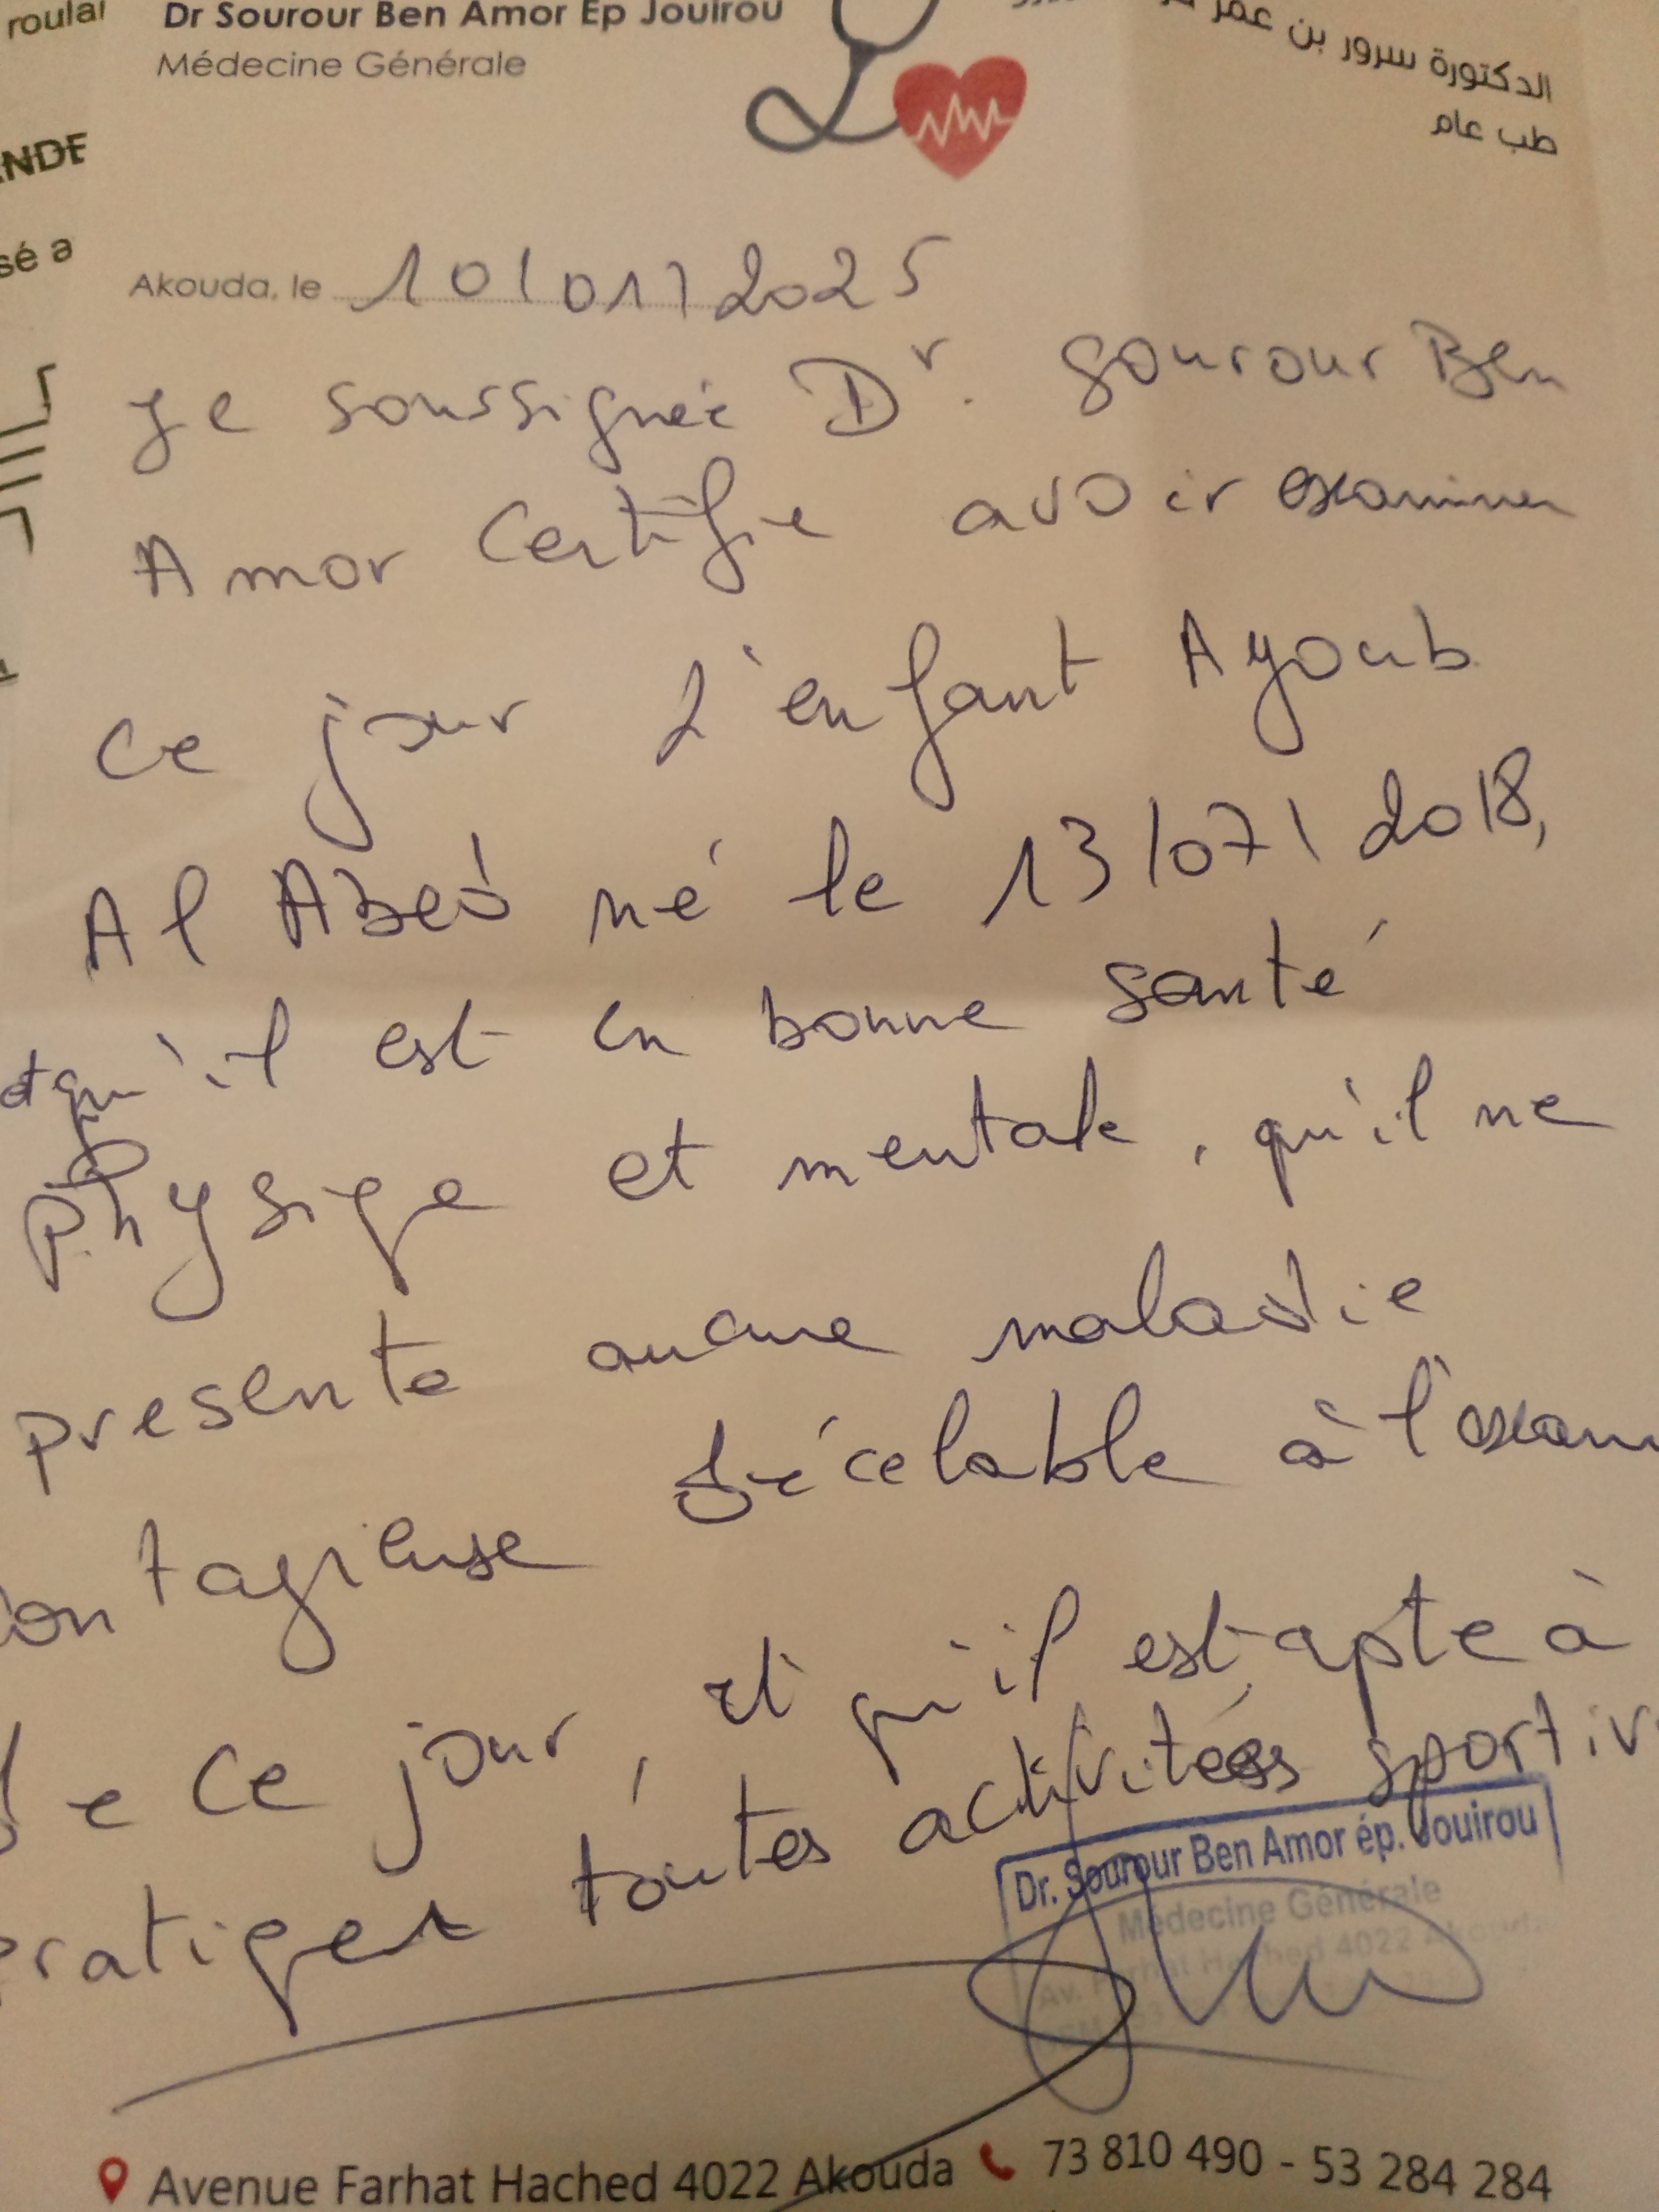 roulal
Dr Sourour Ben Amor Ep Jouirou
Médecine Générale
الدكتورة سرور بن عمر
طب عام
NDE
sé a
Akouda, le 10/01/2025
Je soussignée Dr. Sourour Ben
Amor certifie avoir examiner
ce jour l'enfant Ayoub
Al Abed né le 13/07/2018,
et qu'il est en bonne santé
physiqe et mentale, qu'il ne
presente aucune maladie
contagieuse décelable à l'exam
de ce jour, et qu'il est apte à
pratiqer toutes activités sportiv
Dr. Sourour Ben Amor ép. Jouirou
Médecine Générale
Av. Farhat Hached 4022 Akouda
Avenue Farhat Hached 4022 Akouda 73 810 490 - 53 284 284